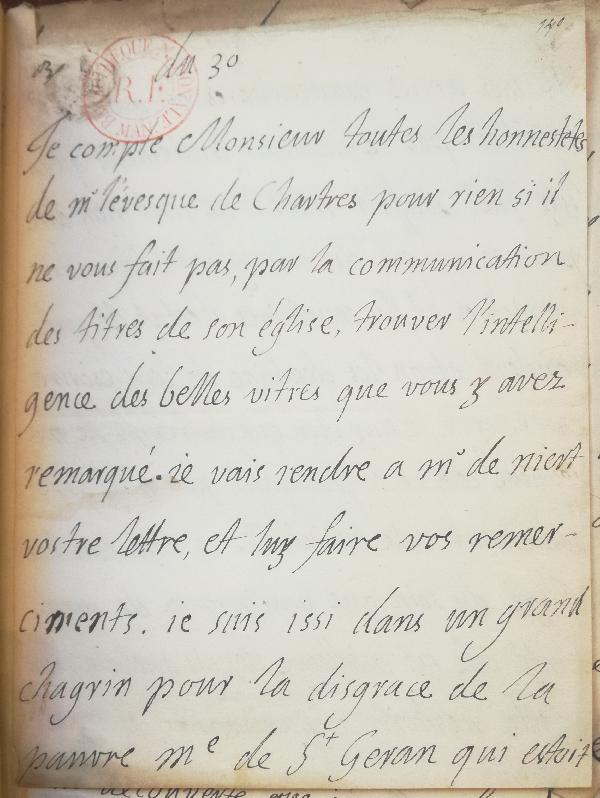 140
du 30
BIBLIOTHEQUE NATIONALE MAN.
R.F.
Je compte Monsieur toutes les honnestetes
de mr l'evesque de Chartres pour rien si il
ne vous fait pas, par la communication
des titres de son église, trouver l'intelli-
gence des belles vitres que vous y avez
remarqué. ie vais rendre a mr de niert
vostre lettre, et luy faire vos remer-
ciments. ie suis issi dans un grand
chagrin pour la disgrace de la
pauvre me de St Geran qui estoit